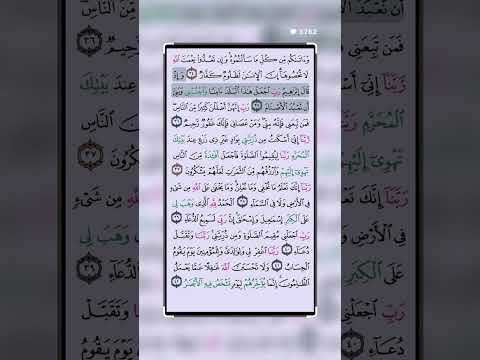 3762
وَءَاتَىٰكُم مِّن كُلِّ مَا سَأَلْتُمُوهُ وَإِن تَعُدُّوا۟ نِعْمَتَ ٱللَّهِ
لَا تُحْصُوهَآ إِنَّ ٱلْإِنسَٰنَ لَظَلُومٌ كَفَّارٌ ٣٤ وَإِذْ
قَالَ إِبْرَٰهِيمُ رَبِّ ٱجْعَلْ هَٰذَا ٱلْبَلَدَ ءَامِنًا وَٱجْنُبْنِى وَبَنِىَّ
أَن نَّعْبُدَ ٱلْأَصْنَامَ ٣٥ رَبِّ إِنَّهُنَّ أَضْلَلْنَ كَثِيرًا مِّنَ ٱلنَّاسِ
فَمَن تَبِعَنِى فَإِنَّهُۥ مِنِّى وَمَنْ عَصَانِى فَإِنَّكَ غَفُورٌ رَّحِيمٌ ٣٦
رَّبَّنَآ إِنِّىٓ أَسْكَنتُ مِن ذُرِّيَّتِى بِوَادٍ غَيْرِ ذِى زَرْعٍ عِندَ بَيْتِكَ
ٱلْمُحَرَّمِ رَبَّنَا لِيُقِيمُوا۟ ٱلصَّلَوٰةَ فَٱجْعَلْ أَفْـِٔدَةً مِّنَ ٱلنَّاسِ
تَهْوِىٓ إِلَيْهِمْ وَٱرْزُقْهُم مِّنَ ٱلثَّمَرَٰتِ لَعَلَّهُمْ يَشْكُرُونَ ٣٧
رَبَّنَآ إِنَّكَ تَعْلَمُ مَا نُخْفِى وَمَا نُعْلِنُ وَمَا يَخْفَىٰ عَلَى ٱللَّهِ مِن شَىْءٍ
فِى ٱلْأَرْضِ وَلَا فِى ٱلسَّمَآءِ ٣٨ ٱلْحَمْدُ لِلَّهِ ٱلَّذِى وَهَبَ لِى
عَلَى ٱلْكِبَرِ إِسْمَٰعِيلَ وَإِسْحَٰقَ إِنَّ رَبِّى لَسَمِيعُ ٱلدُّعَآءِ ٣٩
رَبِّ ٱجْعَلْنِى مُقِيمَ ٱلصَّلَوٰةِ وَمِن ذُرِّيَّتِى رَبَّنَا وَتَقَبَّلْ
دُعَآءِ ٤٠ رَبَّنَا ٱغْفِرْ لِى وَلِوَٰلِدَىَّ وَلِلْمُؤْمِنِينَ يَوْمَ يَقُومُ
ٱلْحِسَابُ ٤١ وَلَا تَحْسَبَنَّ ٱللَّهَ غَٰفِلًا عَمَّا يَعْمَلُ
ٱلظَّٰلِمُونَ إِنَّمَا يُؤَخِّرُهُمْ لِيَوْمٍ تَشْخَصُ فِيهِ ٱلْأَبْصَٰرُ ٤٢